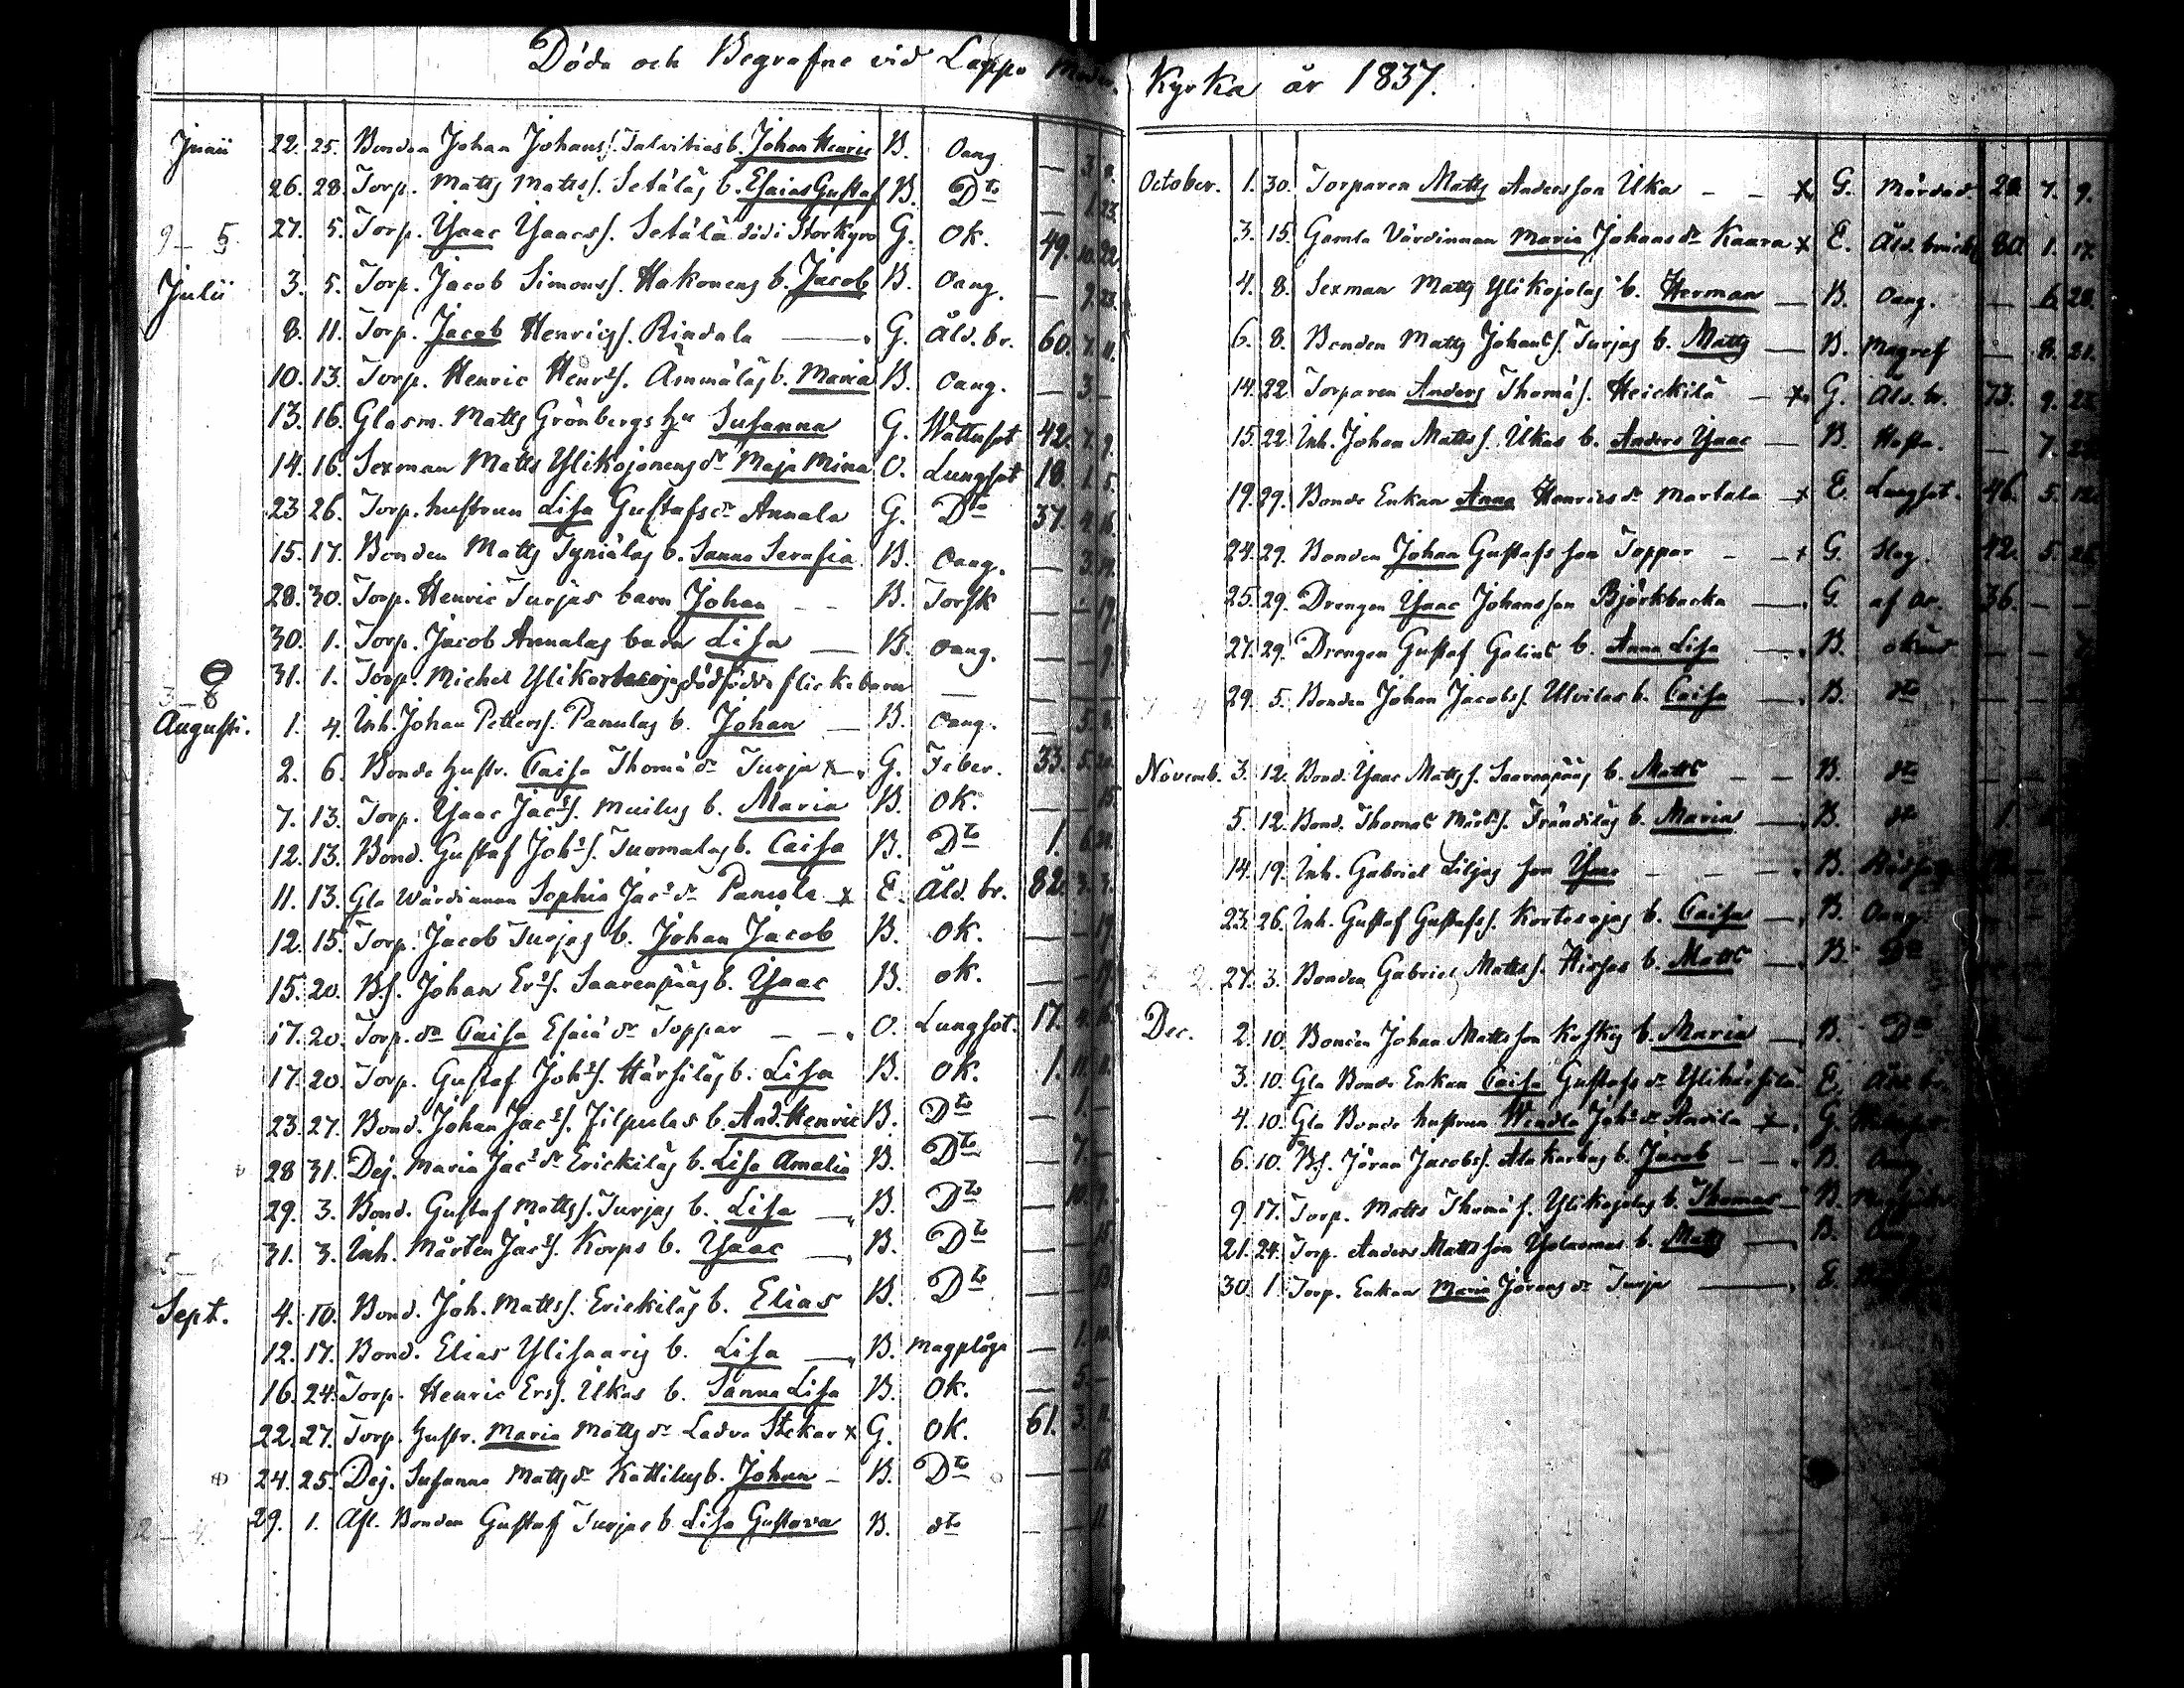 Döda och Begrafne vid Lappo Moder Kyrka år 1837.
Junii 22. 25. Bonden Johan Johanss. Talvities b. Johan Henric B. Oang — 3. 8.
26. 28. Torp. Matts Matss. Setäläs b. Esaias Gustaf B. Dto — 1. 23.
9 — 5 27. 5. Torp. Isaac Isaacss. Setälä död i Storkyro G. OK. 49. 10. 22.
Julii 3. 5. Torp. Jacob Simonss. Hakonens b. Jacob B. Oang. — 9. 23.
8. 11. Torp. Jacob Henricss. Rindala — G. Åld. br. 60. 7. 11.
10. 13. Torp. Henric Henrs. Ämmäläs b. Maria B. Oang. — 3. —
13. 16. Glasm. Matts Grönbergs Hu Susanna G. Wattusot 42. 7. 9.
14. 16. Sexman Matts Ylikojonens dr Maja Mina O. Lungsot 18. 1. 5.
23 26. Torp. hustrun Lisa Gustafsdr Annala G. Dto 37. 4. 16.
15. 17. Bonden Matts Tyniäläs b. Sanna Serafia B. Oang. — 3. 19.
28. 30. Torp. Henric Turjas barn Johan — — B. Torsk — — 19.
30. 1. Torp. Jacob Annalas barn Lisa — B. Oang. — — 9.
31. 1. Torp. Michel Ylikortesojas dödfödda flickebarn —
3 — 8
Augusti. 1. 4. Inh. Johan Petterss. Panulas b. Johan — B. Oang. — 5. 8.
2. 6. Bonde Hustr. Caisa Thomä dr Turja x — G. Feber. 33. 5. 20.
7. 13. Torp. Isaac Jacs. Muilus b. Maria B. OK. — — 15.
12. 13. Bond. Gustaf Johs. Tuomalas b. Caisa B. Dto 1. 6. 21.
11. 13. Gla Wärdinnan Sophia Jacs dr Panula x E. Åld. br. 82. 3. 3.
12. 15. Torp. Jacob Turjas b. Johan Jacob B. OK. — — 19.
15. 20. Bs. Johan Ers. Saarenpääs b. Isaac B. OK. — — 19.
17. 20. Torp. dr Caisa Esaiä dr Toppar — — O. Lungsot. 17. 4.
17. 20. Torp. Gustaf Johs. Härsiläs b. Lisa B. OK. 1. 11. 11.
23. 27. Bond. Johan Jacs. Jilpulas b. And. Henric B. Dto — 1. —
28 31. Dej. Maria Jacs dr Erickiläs b. Lisa Amalia B. Dto — 7. —
29. 3. Bond. Gustaf Mattss. Turjas b. Lisa — B. Dto — 10. 7.
31. 3. Inh. Mårten Jacs. Korps b. Isaac — B. Dto — — 15.
Sept. 4. 10. Bond. Joh. Mattss. Erickiläs b. Elias B. Dto — — 13.
12. 17. Bond. Elias Ylisaaris b. Lisa — B. Magplåga — 1. 10.
16. 24. Torp. Henric Erss. Ukas b. Sanna Lisa B. OK. — 5. —
22. 27. Torp. Hustr. Maria Matts dr Ladva Stekar x G. OK. 61. 3. 11.
24. 25. Dej. Susanna Matts dr Kattilus b. Johan — B. Dto — — 12.
29. 1. Afl. Bonden Gustaf Turjas b. Lisa Gustava B. dto — — 11.
October. 1. 30. Torparen Matts Andersson Uka — — x G. Mördad. 28. 7. 9.
3. 15. Gamla Värdinnan Maria Johans dr Kaara x E. Åld. bräckl 80. 1. 17.
4. 8. Sexman Matts Ylikojolas b. Herman — B. Oang. — 6. 28.
6. 8. Bonden Matts Johans. Turjas b. Matts — B. Magref — 8. 21.
14. 22. Torparen Anders Thomäs. Heickilä — x G. Åld. br. 73. 9.
15. 22. Inh. Johan Mattss. Ukas b. Anders Isaac — B. Hosta. — 7.
19. 29. Bonde Enkan Anna Henrics dr Martala x E. Lungsot. 46. 5. 12.
24. 29. Bonden Johan Gustafsson Toppar — — x G. Slag. 42. 5.
25. 29. Drengen Isaac Johansson Björkbacka — G. af Or. 36. — —
27. 29. Drengen Gustaf Galins b. Anna Lisa — B. okänd — — 7.
29. 5. Bonden Johan Jacobss. Ulvilas b. Caisa — B. dto —
Novemb. 3. 12. Bond. Isaac Mattss. Saarenpääs b. Matts — — B. dto —
5. 12. Bond. Thomas Mårts. Frändiläs b. Maria — B. dto 1.
14. 19. Inh. Gabriel Liljas son Isaac — — — B.
23. 26. Inh. Gustaf Gustafss. Kortesojas b. Caisa — B. Oang
27. 3. Bonden Gabriel Mattss. Hirfas b. Matts — B. Do
Dec. 2. 10. Bonden Johan Mattsson Koskis b. Maria — B. Do
3. 10. Gla Bonde Enkan Caisa Gustafs dr Ylihärsilä E. Åld. br.
4. 10. Gla Bonde hustrun Wendla Johs dr Andila x G.
6. 10. Bs. Jöran Jacobss. Alakarhus b. Jacob — — B. Oang.
9. 17. Torp. Matts Thomäs. Ylikojolas b. Thomas — B.
21. 24. Torp. Anders Mattsson b. Matts — B.
30. 1. Torp. Enkan Maria Jörans dr Turja — E.